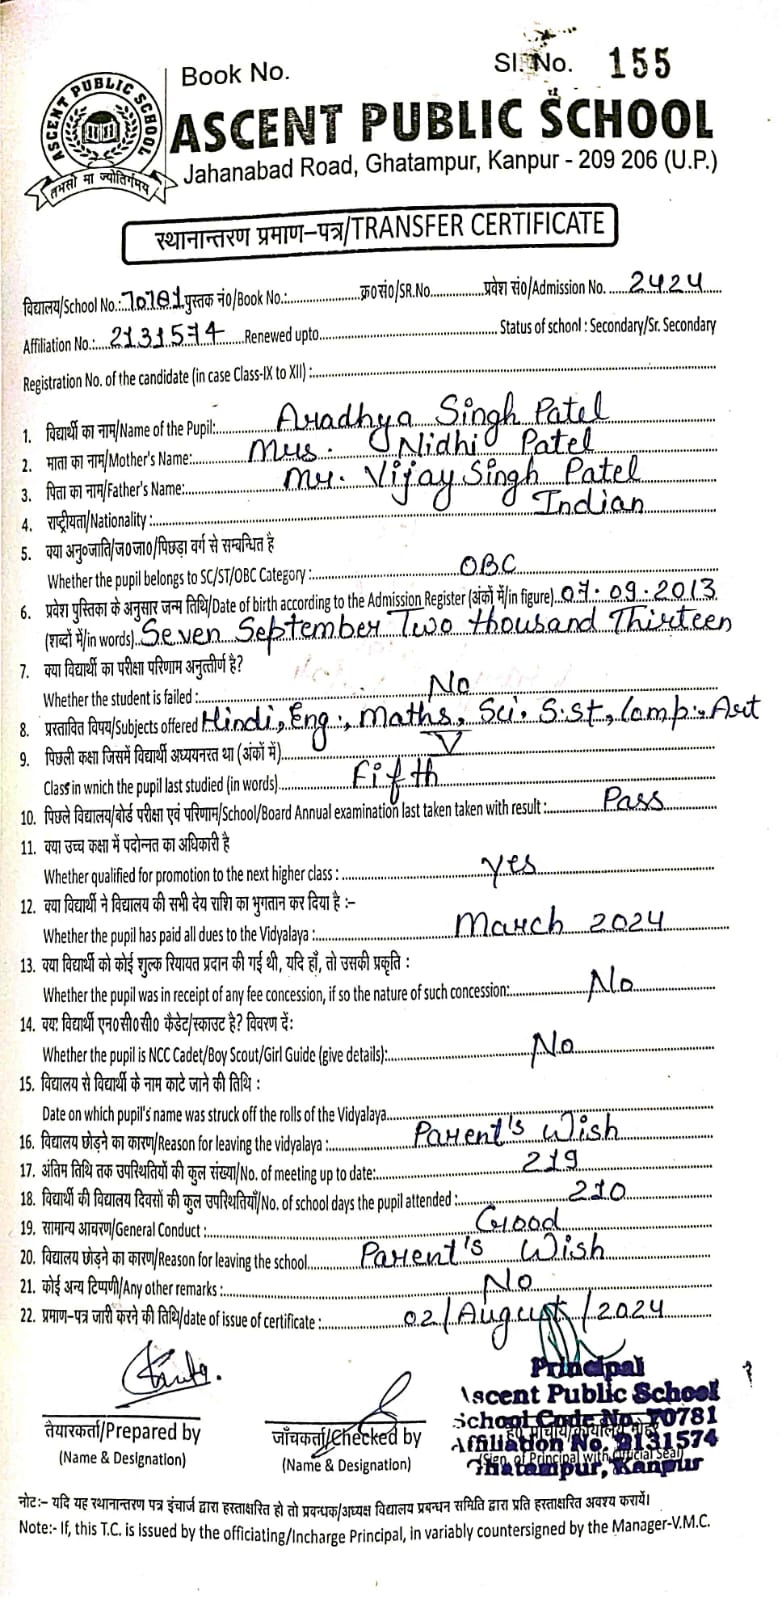 Book No.
Sl. No. 155
ASCENT PUBLIC SCHOOL
तमसो मा ज्योतिर्गमय
ASCENT PUBLIC SCHOOL
Jahanabad Road, Ghatampur, Kanpur - 209 206 (U.P.)
स्थानान्तरण प्रमाण–पत्र/TRANSFER CERTIFICATE
विद्यालय/School No.: 70781 पुस्तक नं०/Book No.: क्र०सं०/SR.No. प्रवेश सं०/Admission No. 2424
Affiliation No.: 2131574 Renewed upto Status of school : Secondary/Sr. Secondary
Registration No. of the candidate (in case Class-IX to XII) :
1. विद्यार्थी का नाम/Name of the Pupil: Aradhya Singh Patel
2. माता का नाम/Mother's Name: Mrs. Nidhi Patel
3. पिता का नाम/Father's Name: Mr. Vijay Singh Patel
4. राष्ट्रीयता/Nationality : Indian
5. क्या अनु०जाति/ज०जा०/पिछड़ा वर्ग से सम्बन्धित है
Whether the pupil belongs to SC/ST/OBC Category : OBC
6. प्रवेश पुस्तिका के अनुसार जन्म तिथि/Date of birth according to the Admission Register (अंकों में/in figure) 07.09.2013
(शब्दों में/in words) Seven September Two thousand Thirteen
7. क्या विद्यार्थी का परीक्षा परिणाम अनुत्तीर्ण है?
Whether the student is failed : No
8. प्रस्तावित विषय/Subjects offered Hindi, Eng., Maths, Sci. S.st, Comp., Art
9. पिछली कक्षा जिसमें विद्यार्थी अध्ययनरत था (अंकों में) V
Class in wnich the pupil last studied (in words) Fifth
10. पिछले विद्यालय/बोर्ड परीक्षा एवं परिणाम/School/Board Annual examination last taken taken with result : Pass
11. क्या उच्च कक्षा में पदोन्नत का अधिकारी है
Whether qualified for promotion to the next higher class : yes
12. क्या विद्यार्थी ने विद्यालय की सभी देय राशि का भुगतान कर दिया है :–
Whether the pupil has paid all dues to the Vidyalaya : March 2024
13. क्या विद्यार्थी को कोई शुल्क रियायत प्रदान की गई थी, यदि हाँ, तो उसकी प्रकृति :
Whether the pupil was in receipt of any fee concession, if so the nature of such concession: No
14. क्या विद्यार्थी एन०सी०सी० कैडेट/स्काउट है? विवरण दें:
Whether the pupil is NCC Cadet/Boy Scout/Girl Guide (give details): No
15. विद्यालय से विद्यार्थी के नाम काटे जाने की तिथि :
Date on which pupil's name was struck off the rolls of the Vidyalaya
16. विद्यालय छोड़ने का कारण/Reason for leaving the vidyalaya : Parent's Wish
17. अंतिम तिथि तक उपस्थितियों की कुल संख्या/No. of meeting up to date: 219
18. विद्यार्थी की विद्यालय दिवसों की कुल उपस्थितियाँ/No. of school days the pupil attended : 210
19. सामान्य आचरण/General Conduct : Good
20. विद्यालय छोड़ने का कारण/Reason for leaving the school Parent's Wish
21. कोई अन्य टिप्पणी/Any other remarks : No
22. प्रमाण–पत्र जारी करने की तिथि/date of issue of certificate : 02/August/2024
Principal
Ascent Public School
School Code No. 70781
Affiliation No. 2131574
Ghatampur, Kanpur
तैयारकर्ता/Prepared by
(Name & Designation)
जाँचकर्ता/Checked by
(Name & Designation)
(Sign. of Principal with Official Seal)
नोट:– यदि यह स्थानान्तरण पत्र इंचार्ज द्वारा हस्ताक्षरित हो तो प्रबन्धक/अध्यक्ष विद्यालय प्रबन्धन समिति द्वारा प्रति हस्ताक्षरित अवश्य करायें।
Note:- If, this T.C. is issued by the officiating/Incharge Principal, in variably countersigned by the Manager-V.M.C.